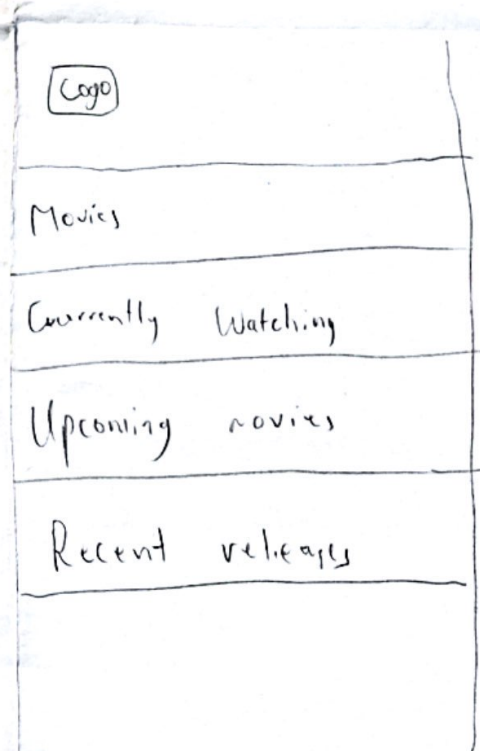 Logo
Movies
Currently Watching
Upcoming movies
Recent releases